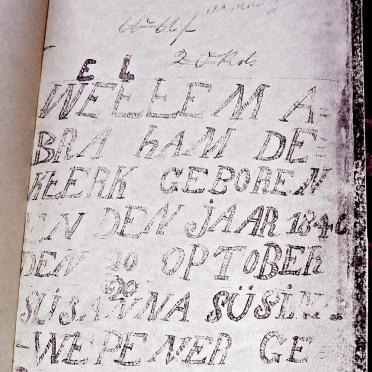 20 Rds
E L
WELLEM A
BRA hAM DE
KLERK GEBOREN
EN DEN jAAR 1840
DEN 20 OPTOBER
20
SÜSANNA SÜSINA
WEPENER GE